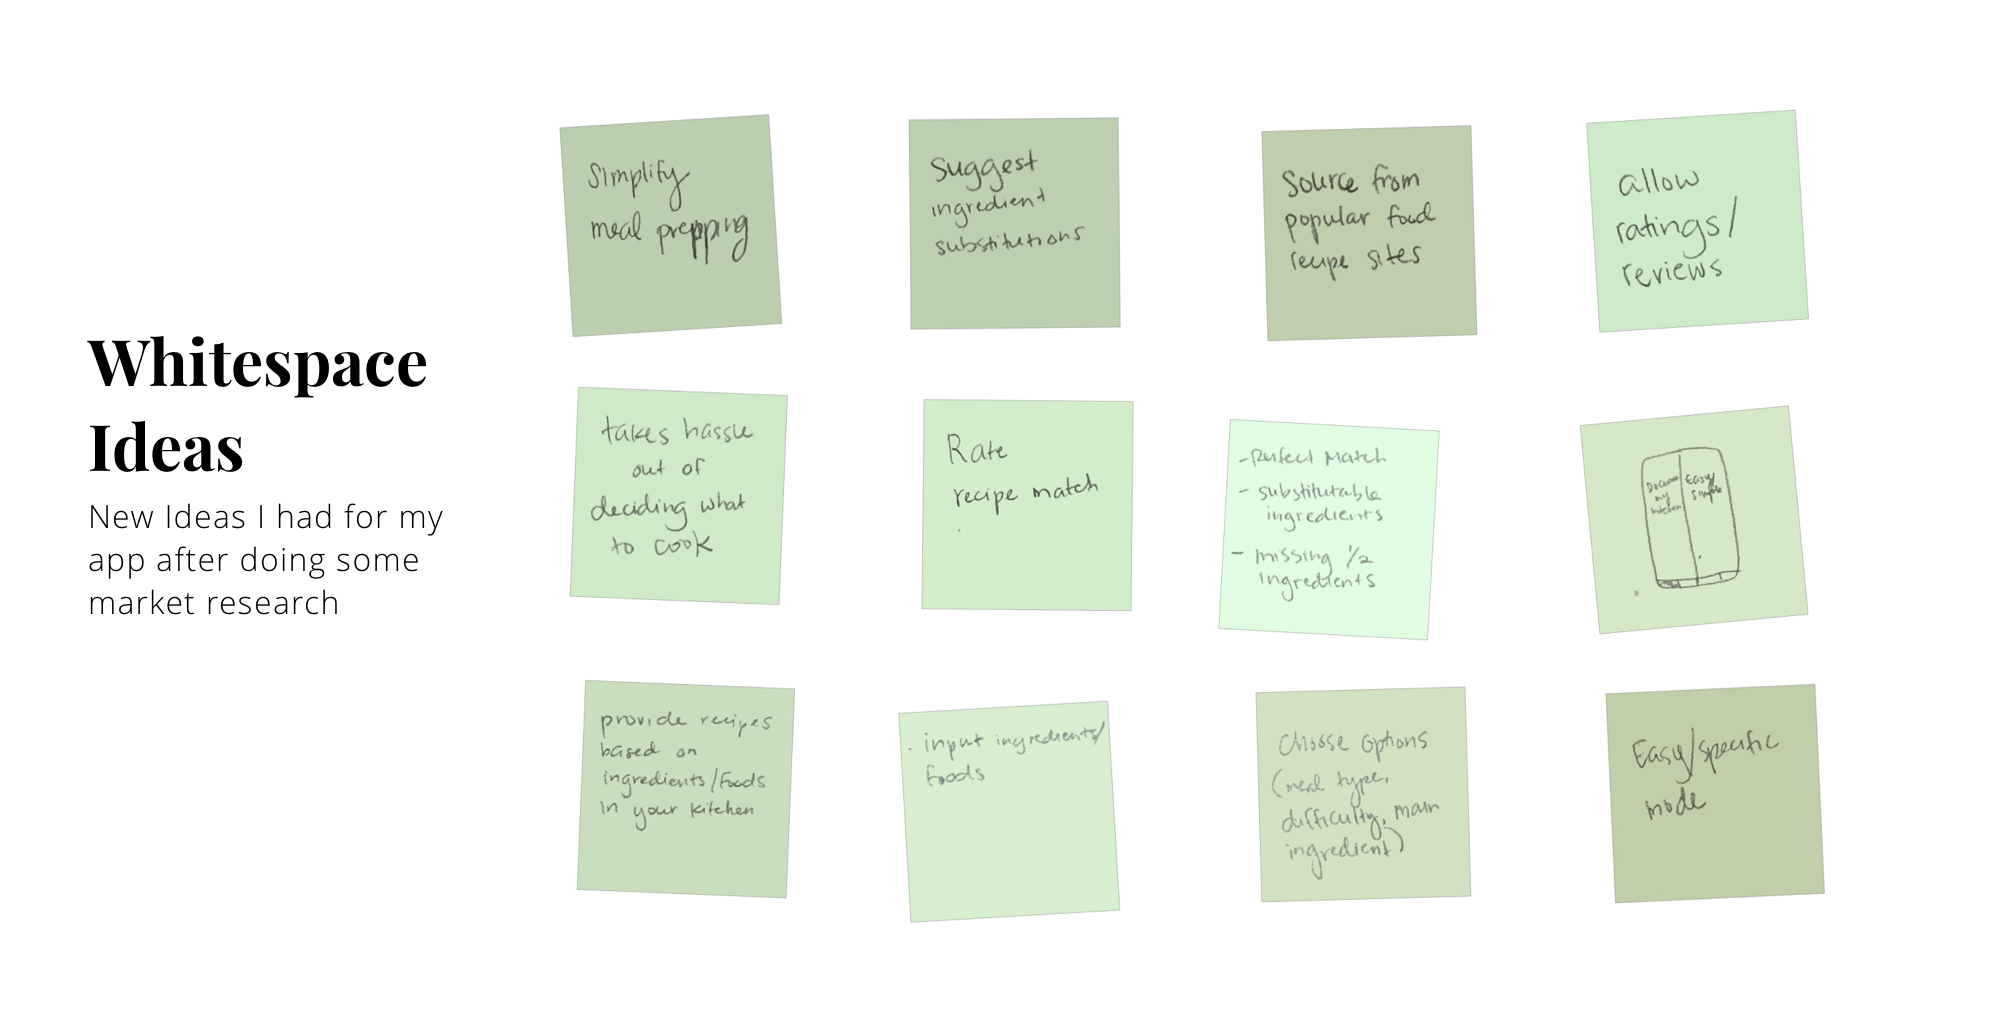 Whitespace
Ideas
New Ideas I had for my
app after doing some
market research
Simplify
meal prepping
Suggest
ingredient
substitutions
Source from
popular food
recipe sites
allow
ratings/
reviews
takes hassle
out of
deciding what
to cook
Rate
recipe match
- Perfect Match
- substitutable
ingredients
- missing 1/2
ingredients
my
kitchen
Easy/
simple
provide recipes
based on
ingredients/foods
in your kitchen
. input ingredients/
foods
Choose options
(meal type,
difficulty, main
ingredient)
Easy/specific
mode